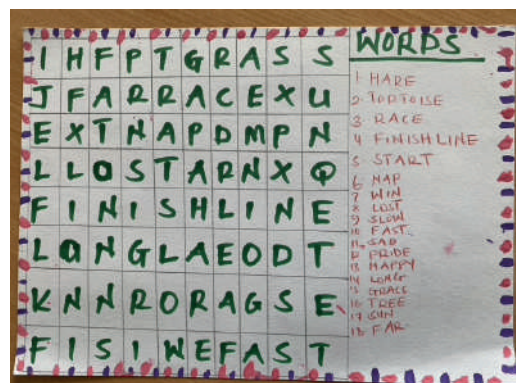 I H F P T G R A S S
J F A R R A C E X U
E X T N A P D M P N
L L O S T A R N X Q
F I N I S H L I N E
L O N G L A E O D T
K N N R O R A G S E
F I S I W E F A S T
WORDS
1 HARE
2 TORTOISE
3 RACE
4 FINISH LINE
5 START
6 NAP
7 WIN
8 LOST
9 SLOW
10 FAST
11 SAD
12 PRIDE
13 HAPPY
14 LONG
15 GRACE
16 TREE
17 SUN
18 FAR